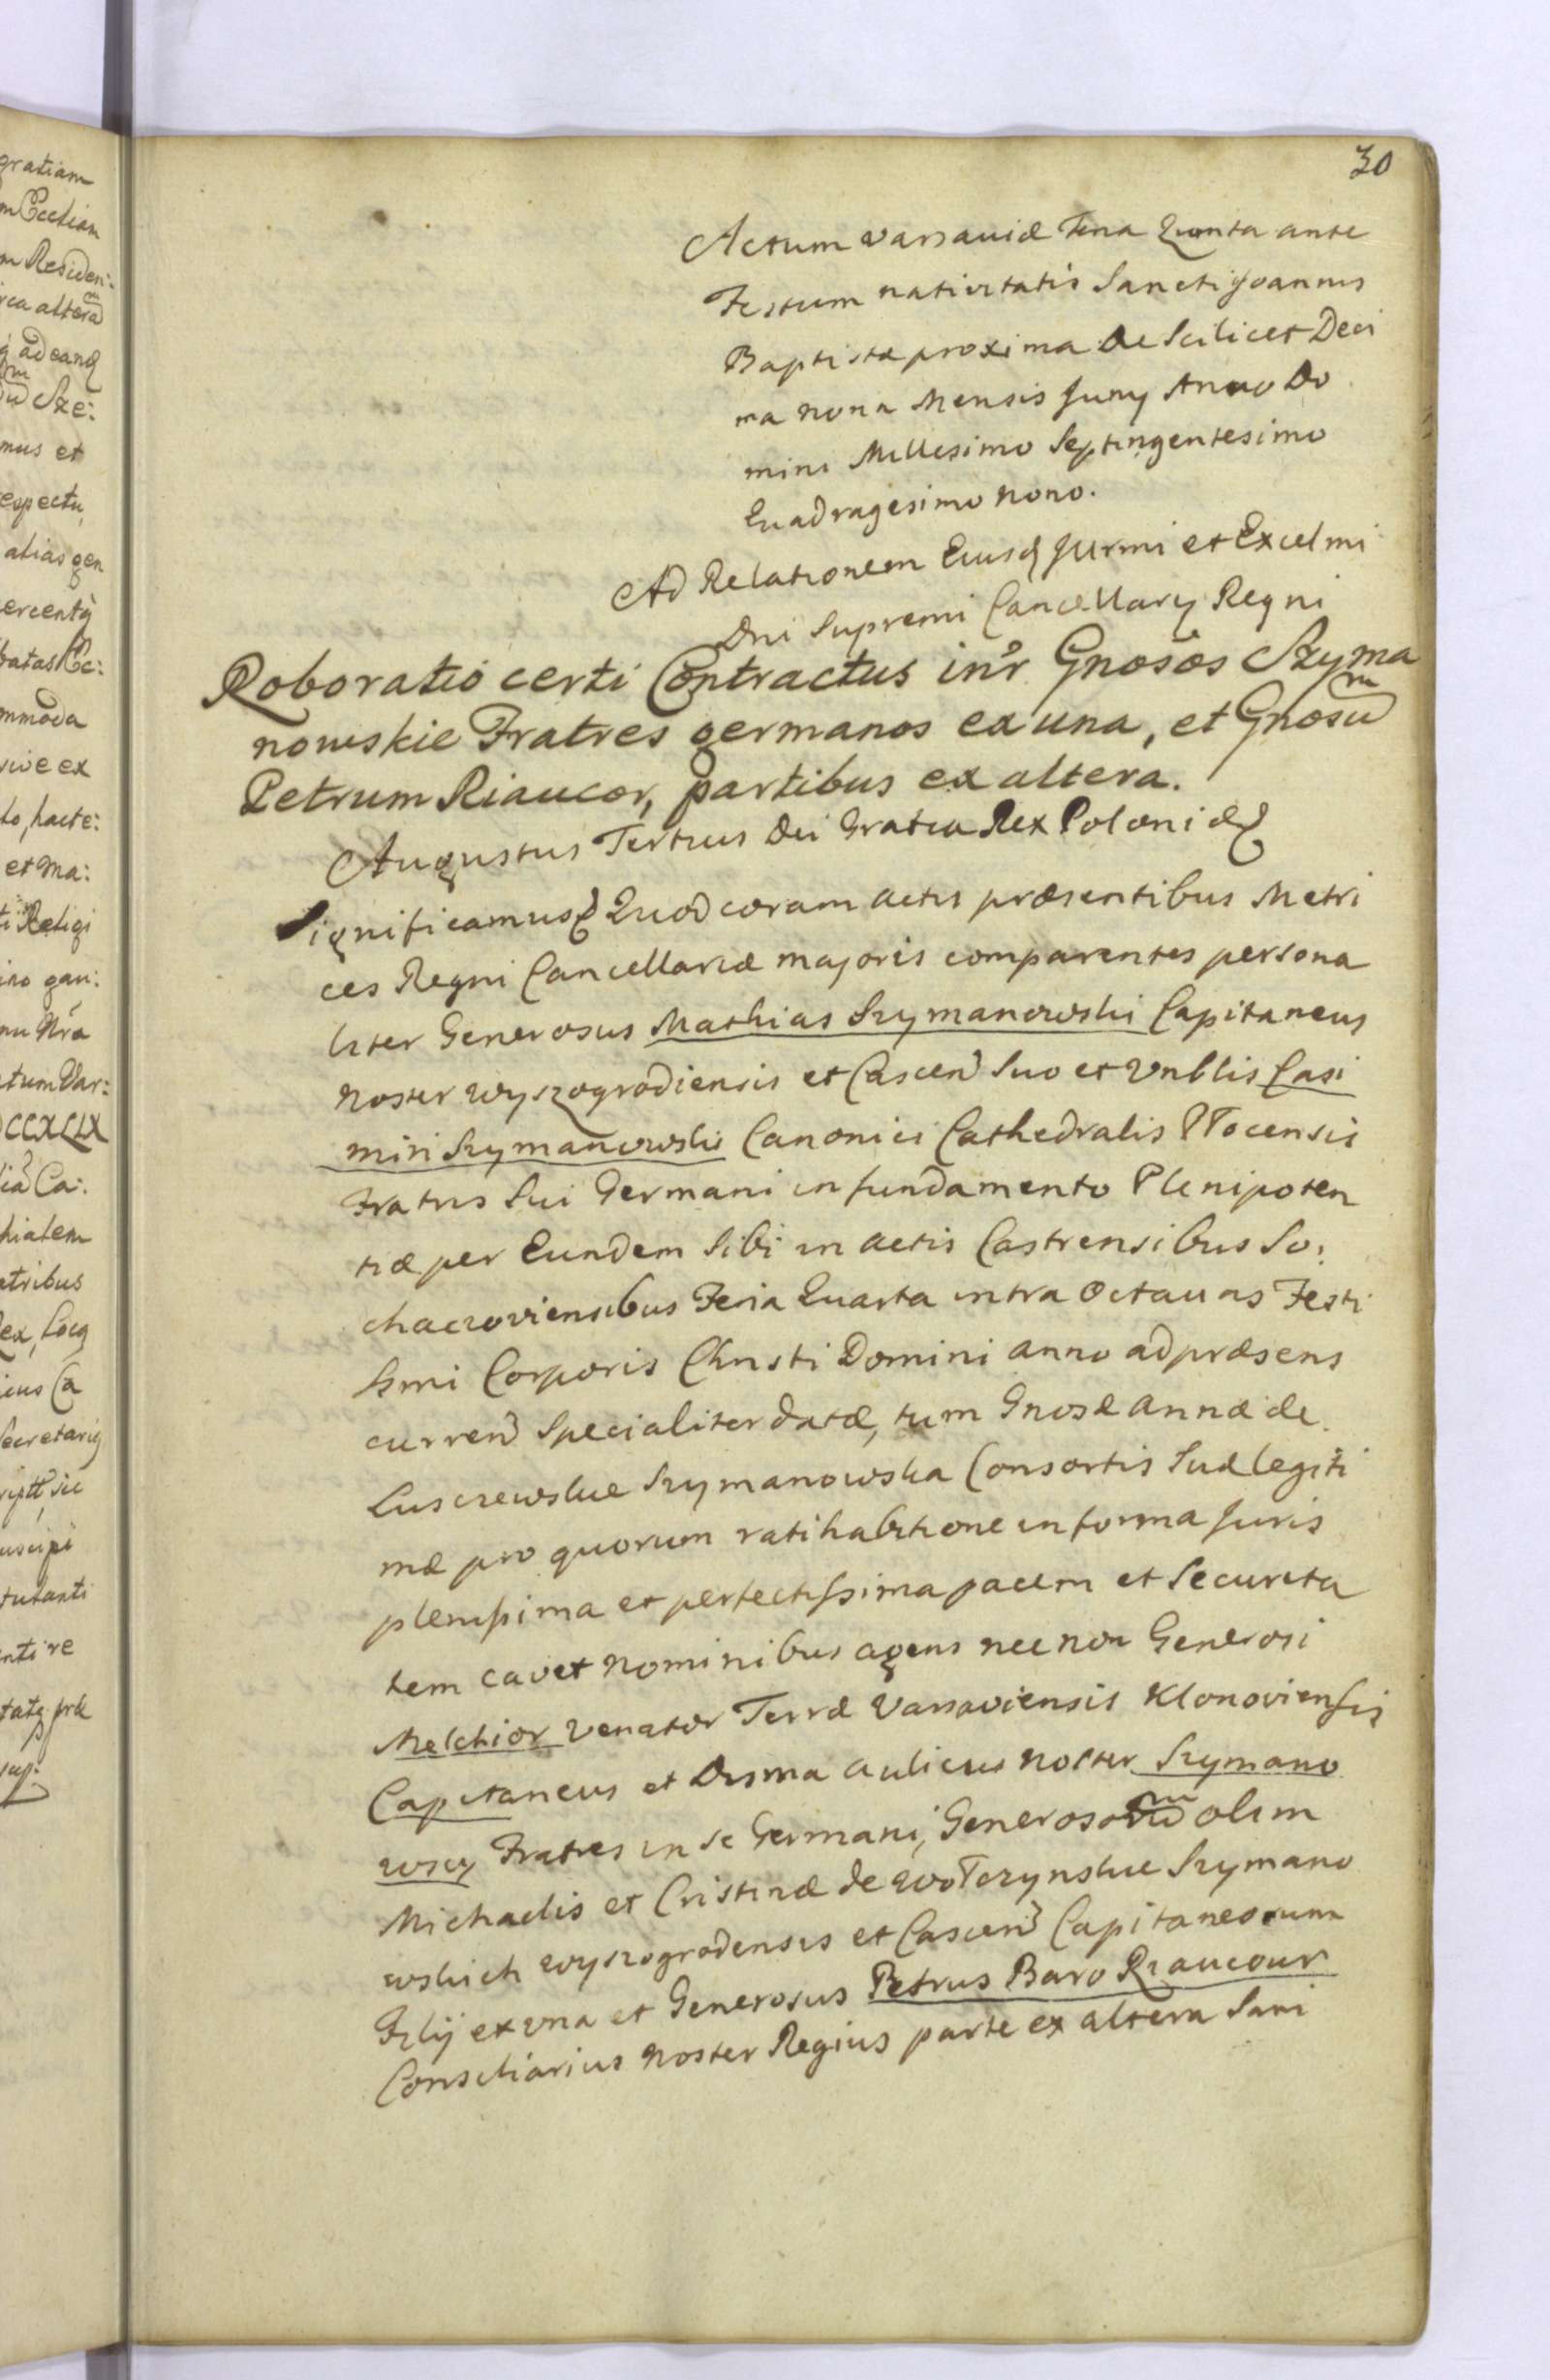 30
Actum Varsaviæ Feria Quinta ante
Festum nativitatis Sancti Joannis
Baptistæ proxima Die Scilicet Deci
ma nona Mensis Juny Anno Do
mini Millesimo Septingentesimo
Quadragesimo nono.
Ad Relationem Eiusq Jllrmi et Excelmi
Dni Supremi Cancellary Regni
Roboratio certi Contractus inr Gnosos Szyma
nowskie Fratres germanos ex una, et Gnosum
Petrum Riaucor, partibus ex altera.
Augustus Tertius Dei Gratia Rex Poloniæ
Significamus Quod coram actis præsentibus Metri
ces Regni Cancellariæ majoris comparentes persona
liter Generosus Mathias Szymanowski Capitaneus
noster Wyszogrodiensis et Cascen Suo et Vnblis Casi
miri Szymanowski Canonici Cathedralis Płocensis
Fratris Sui Germani in fundamento Plenipoten
tiæ per Eundem Sibi in actis Castrensibus So:
chaczoviensibus Feria Quarta intra Octavas Festi
Ssmi Corporis Christi Domini anno ad præsens
curren Specialiter datæ, tum Gnosæ Annæ de
Lusczewskie Szymanowska Consortis Suæ legiti
mæ pro quorum ratihabitione in forma Juris
plenissima et perfectissima pacem et Securita
tem cavet nominibus agens nec non Generosi
Melchior Venator Terræ Varsaviensis Klonoviensis
Capitaneus et Disma aulicus noster Szymano
wscy Fratres in se Germani, Generosorum olim
Michaelis et Cristinæ de Wołczynskie Szymano
wskich Wyszogrodensis et Cascen Capitaneorum
Filij ex vna et Generosus Petrus Baro Riaucour
Consiliarius noster Regius parte ex altera Sani
gratiam
m Residen:
mus et
alias gen
batas Ec:
mmoda
sive ex
et Ma:
CCXLIX
hialem
atribus